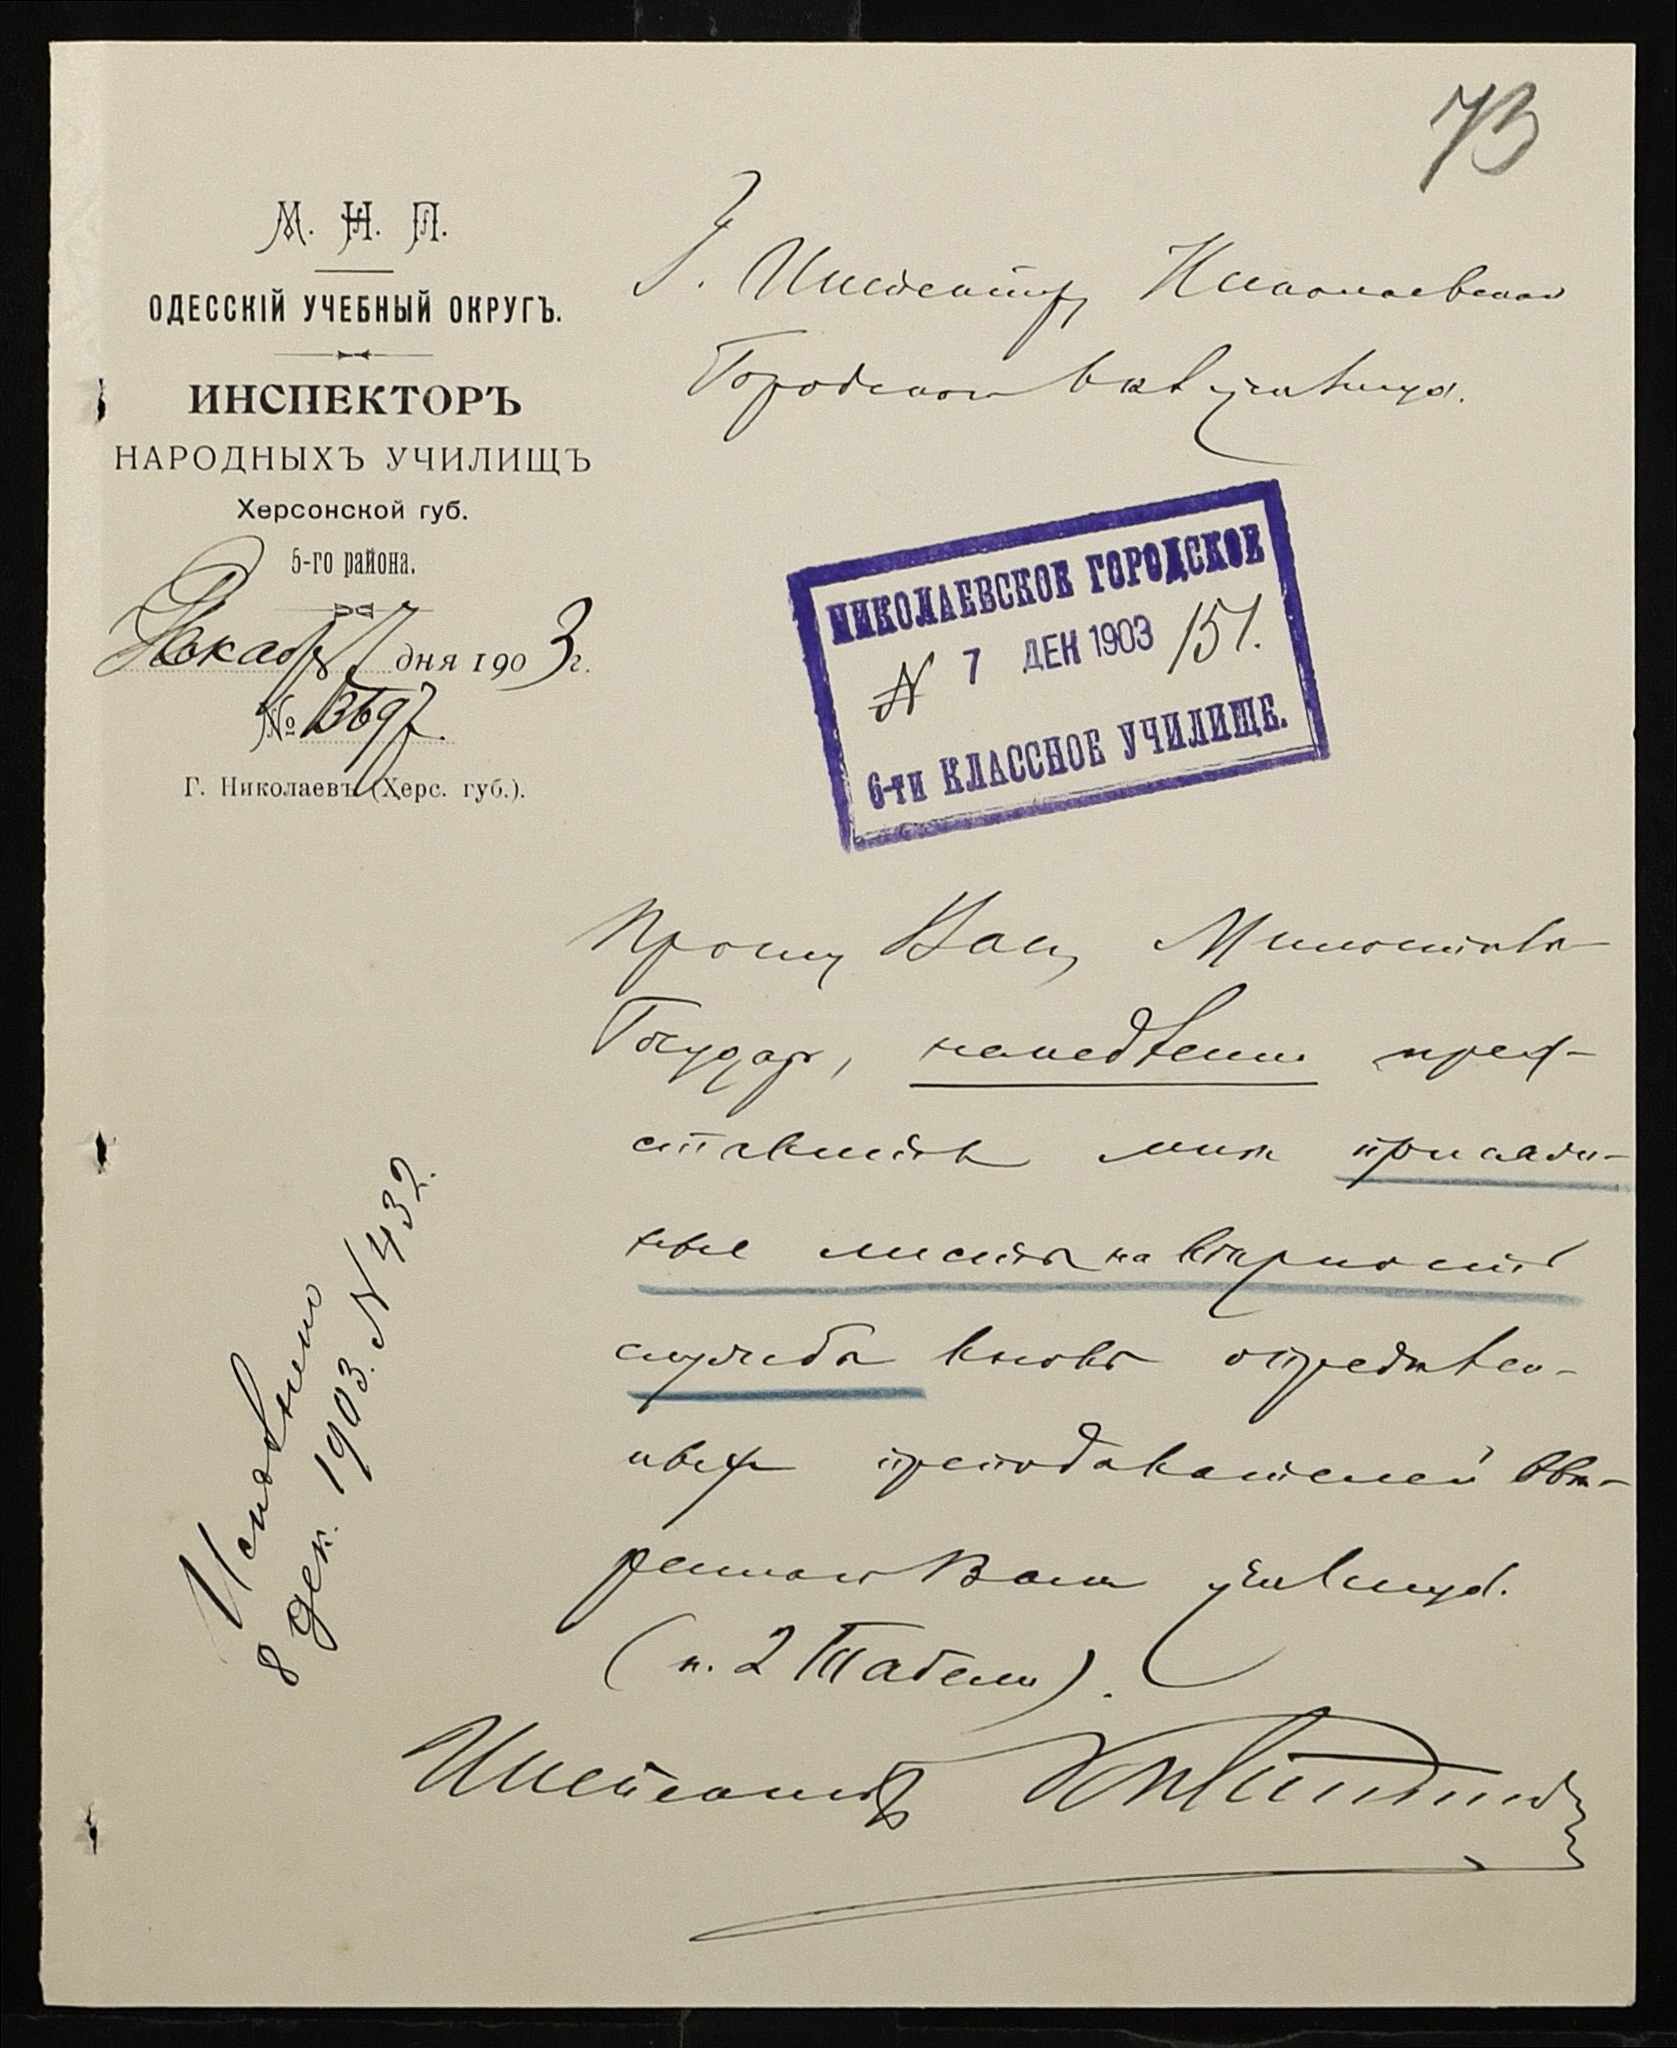 73
М. Н. П.
ОДЕССКІЙ УЧЕБНЫЙ ОКРУГЪ.
ИНСПЕКТОРЪ
НАРОДНЫХЪ УЧИЛИЩЪ
Херсонской губ.
5-го района.
Декабря 7 дня 1903 г.
№ 1369
Г. Николаевъ (Херс. губ.).
Г. Инспектору Николаевскаго
Городского 6 кл училища.
НИКОЛАЕВСКОЕ ГОРОДСКОЕ
N 7 ДЕК 1903 151.
6-ти КЛАССНОЕ УЧИЛИЩЕ.
Прошу Васъ, Милостивый
Государь, немедленно пред-
ставить мнѣ присяж-
ные листы на вѣрность
службы вновь опредѣлен-
ныхъ преподавателей ввѣ-
реннаго Вамъ училища.
(п. 2 Табели).
Инспекторъ
Исполнено
8 дек. 1903. N 432.